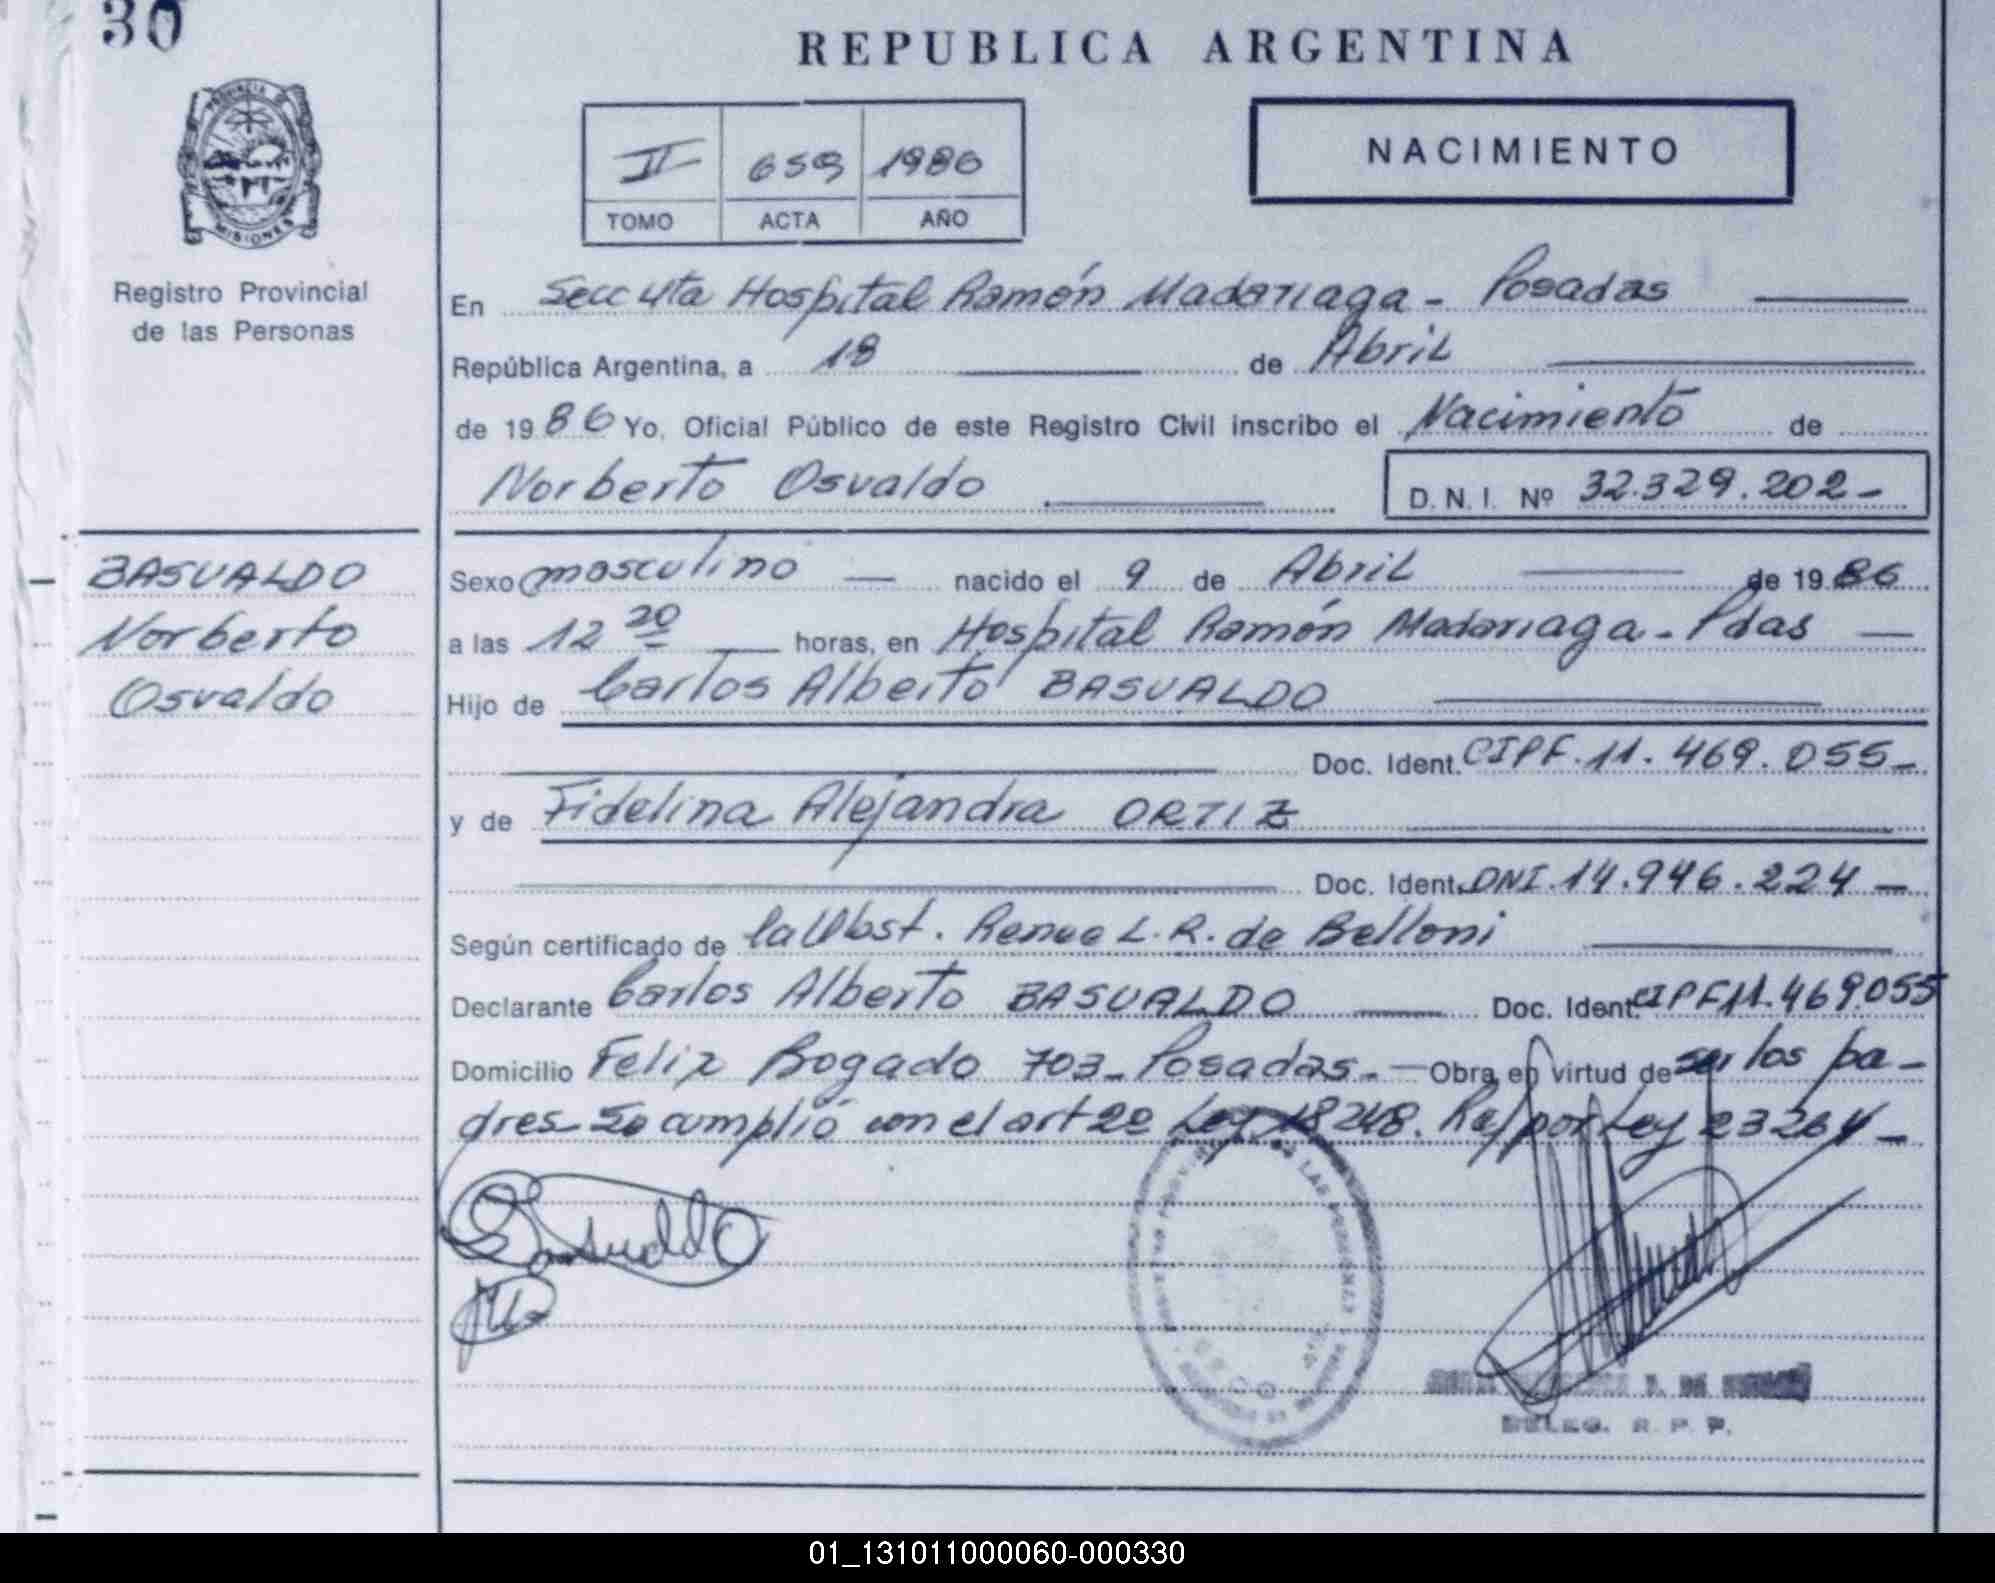 30
REPUBLICA ARGENTINA
PROVINCIA DE
MISIONES
II 659 1986
TOMO ACTA AÑO
NACIMIENTO
Registro Provincial
de las Personas
En Secc 4ta Hospital Ramón Madariaga - Posadas
República Argentina, a 18 de Abril
de 1986 Yo, Oficial Público de este Registro Civil inscribo el Nacimiento de
Norberto Osvaldo D.N.I. Nº 32.329.202-
BASUALDO
Norberto
Osvaldo
Sexo masculino nacido el 9 de Abril de 1986
a las 12 20 horas, en Hospital Ramón Madariaga - Pdas
Hijo de Carlos Alberto BASUALDO
Doc. Ident. CIPF. 11.469.055-
y de Fidelina Alejandra ORTIZ
Doc. Ident. DNI. 14.946.224
Según certificado de la Obst. Renee L. R. de Belloni
Declarante Carlos Alberto BASUALDO Doc. Ident. CIPF 11.469.055
Domicilio Feliz Bogado 703 - Posadas - Obra en virtud de ser los pa-
dres Se cumplió con el art 2º Ley 18248. Ref por Ley 23264
Basualdo
DE LAS PERSONAS
DELEG. R. P. P.
01_131011000060-000330